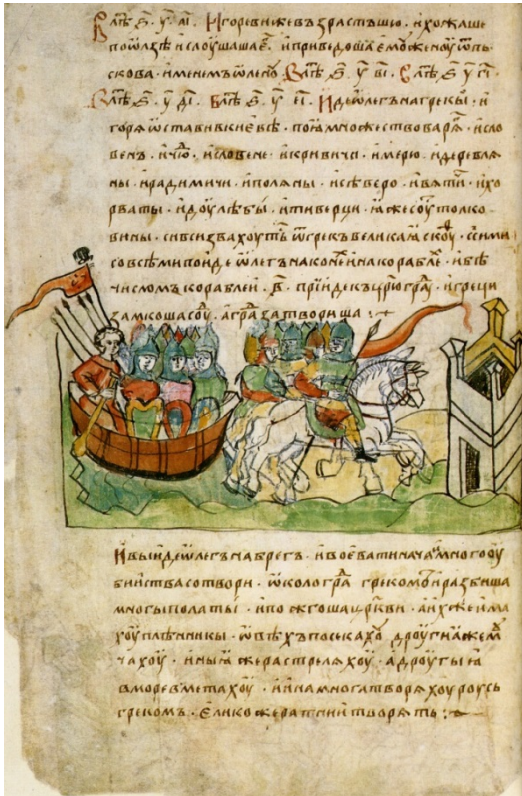 В лѣⷮ ҂ѕ҃ у҃ аі҃. Игореви же възрастъшю. и хожаше
по ѡлзѣ и слоушаша еⷢ. и приведоша емоу женоу ѿ пь
скова. именемъ ѡленоу. В лѣⷮ ҂ѕ҃ у҃ ві҃. В лѣⷮ ҂ѕ҃ у҃ гі҃.
В лѣⷮ ҂ѕ҃ у҃ ді҃. В лѣⷮ ҂ѕ҃ у҃ еі҃. Иде ѡлегъ на грекы. и
горѧ ѡстави в киевѣ. поѧ множество варѧⷢ. и сло
венъ. и чюⷣ. и словене. и кривичи. и мерю. и деревлѧ
ны. и радимичи. и полѧны. и северо. и вѧтичи. и хо
рваты. и доулѣбы. и тиверци. ꙗже соуⷮ толко
вины. си вси звахоутьⷭ ѿ грекъ великаѧ скоуⷴ. с сими
со всѣми поиде ѡлегъ на конеⷯ и на кораблеⷯ. и бѣ
числомъ кораблеи. ҂в҃. прїиде къ црⷭ҇ю граⷣ. и греци
замкоша соуⷣ. а граⷣ затвориша
И выиде ѡлегъ на брегъ. и воевати нача. и много оу
биства сотвори. ѡколо граⷣ грекоⷨ. и разбиша
многы полаты. и пожгоша церкви. а ихже има
хоу плѣнникы. ѡвѣхъ посекахоу. дроугиа же мⷱ
чахоу. иныѧ же растрелѧхоу. а дроугыѧ
в море вметахоу. и ина многа творѧхоу роусь
грекомъ. елико же ратнии творѧть